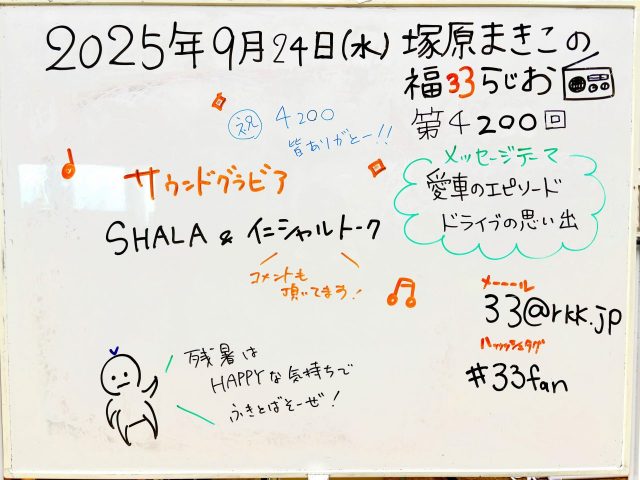 2025年9月24日(水) 塚原まきこの
福33らじお
第4200回
祝 4200
皆ありがとー!!
メッセージテーマ
愛車のエピソード
ドライブの思い出
サウンドグラビア
SHALA & イニシャルトーク
コメントも
頂いてまう!
メーール
33@rkk.jp
ハッシュタグ
#33fan
残暑は
HAPPYな気持ちで
ふきとばそーぜ!